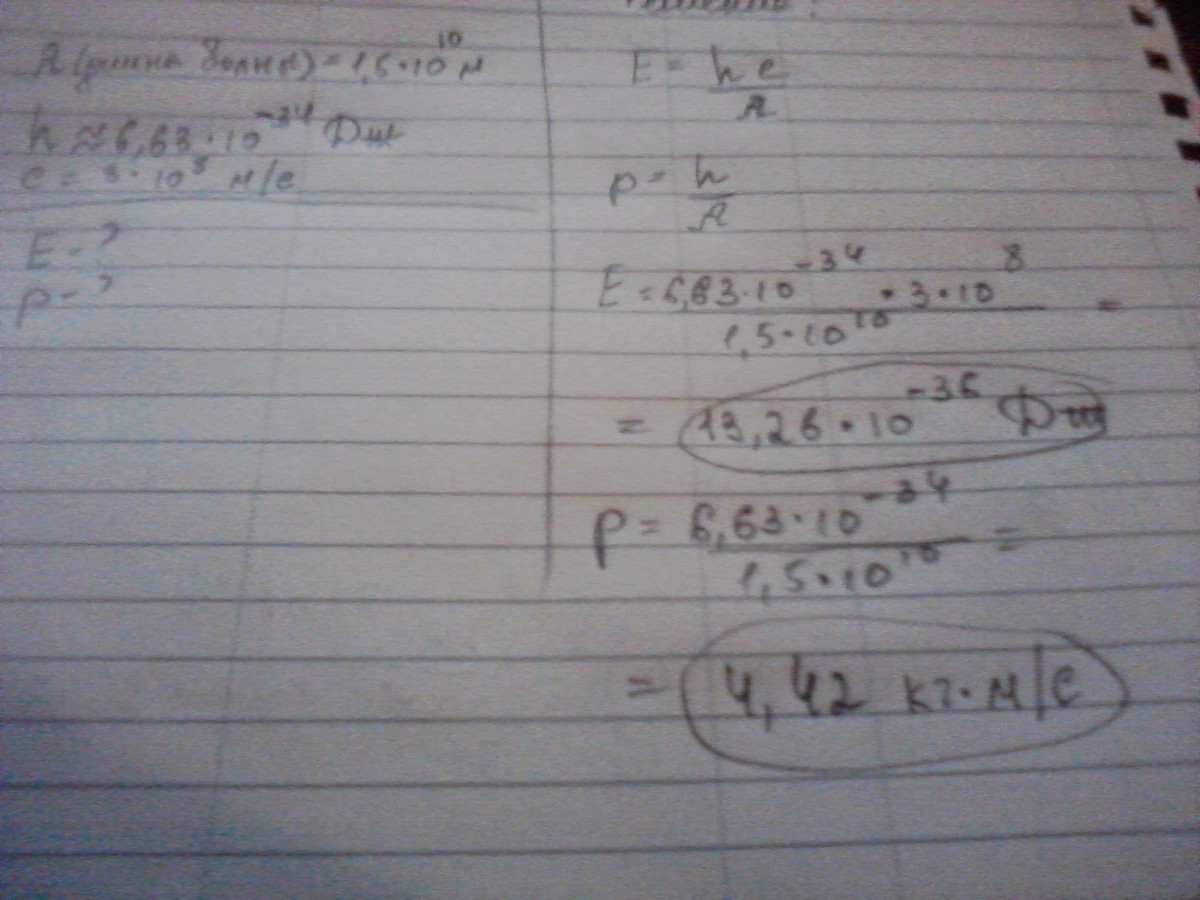 λ (длина волны) = 1,5·10¹⁰ м
h ≈ 6,63·10⁻³⁴ Дж
c = 3·10⁸ м/с
E - ?
p - ?
E = hc/λ
p = h/λ
E = 6,63·10⁻³⁴·3·10⁸ / 1,5·10¹⁰ =
= 13,26·10⁻³⁶ Дж
p = 6,63·10⁻³⁴ / 1,5·10¹⁰ =
= 4,42 кг·м/с